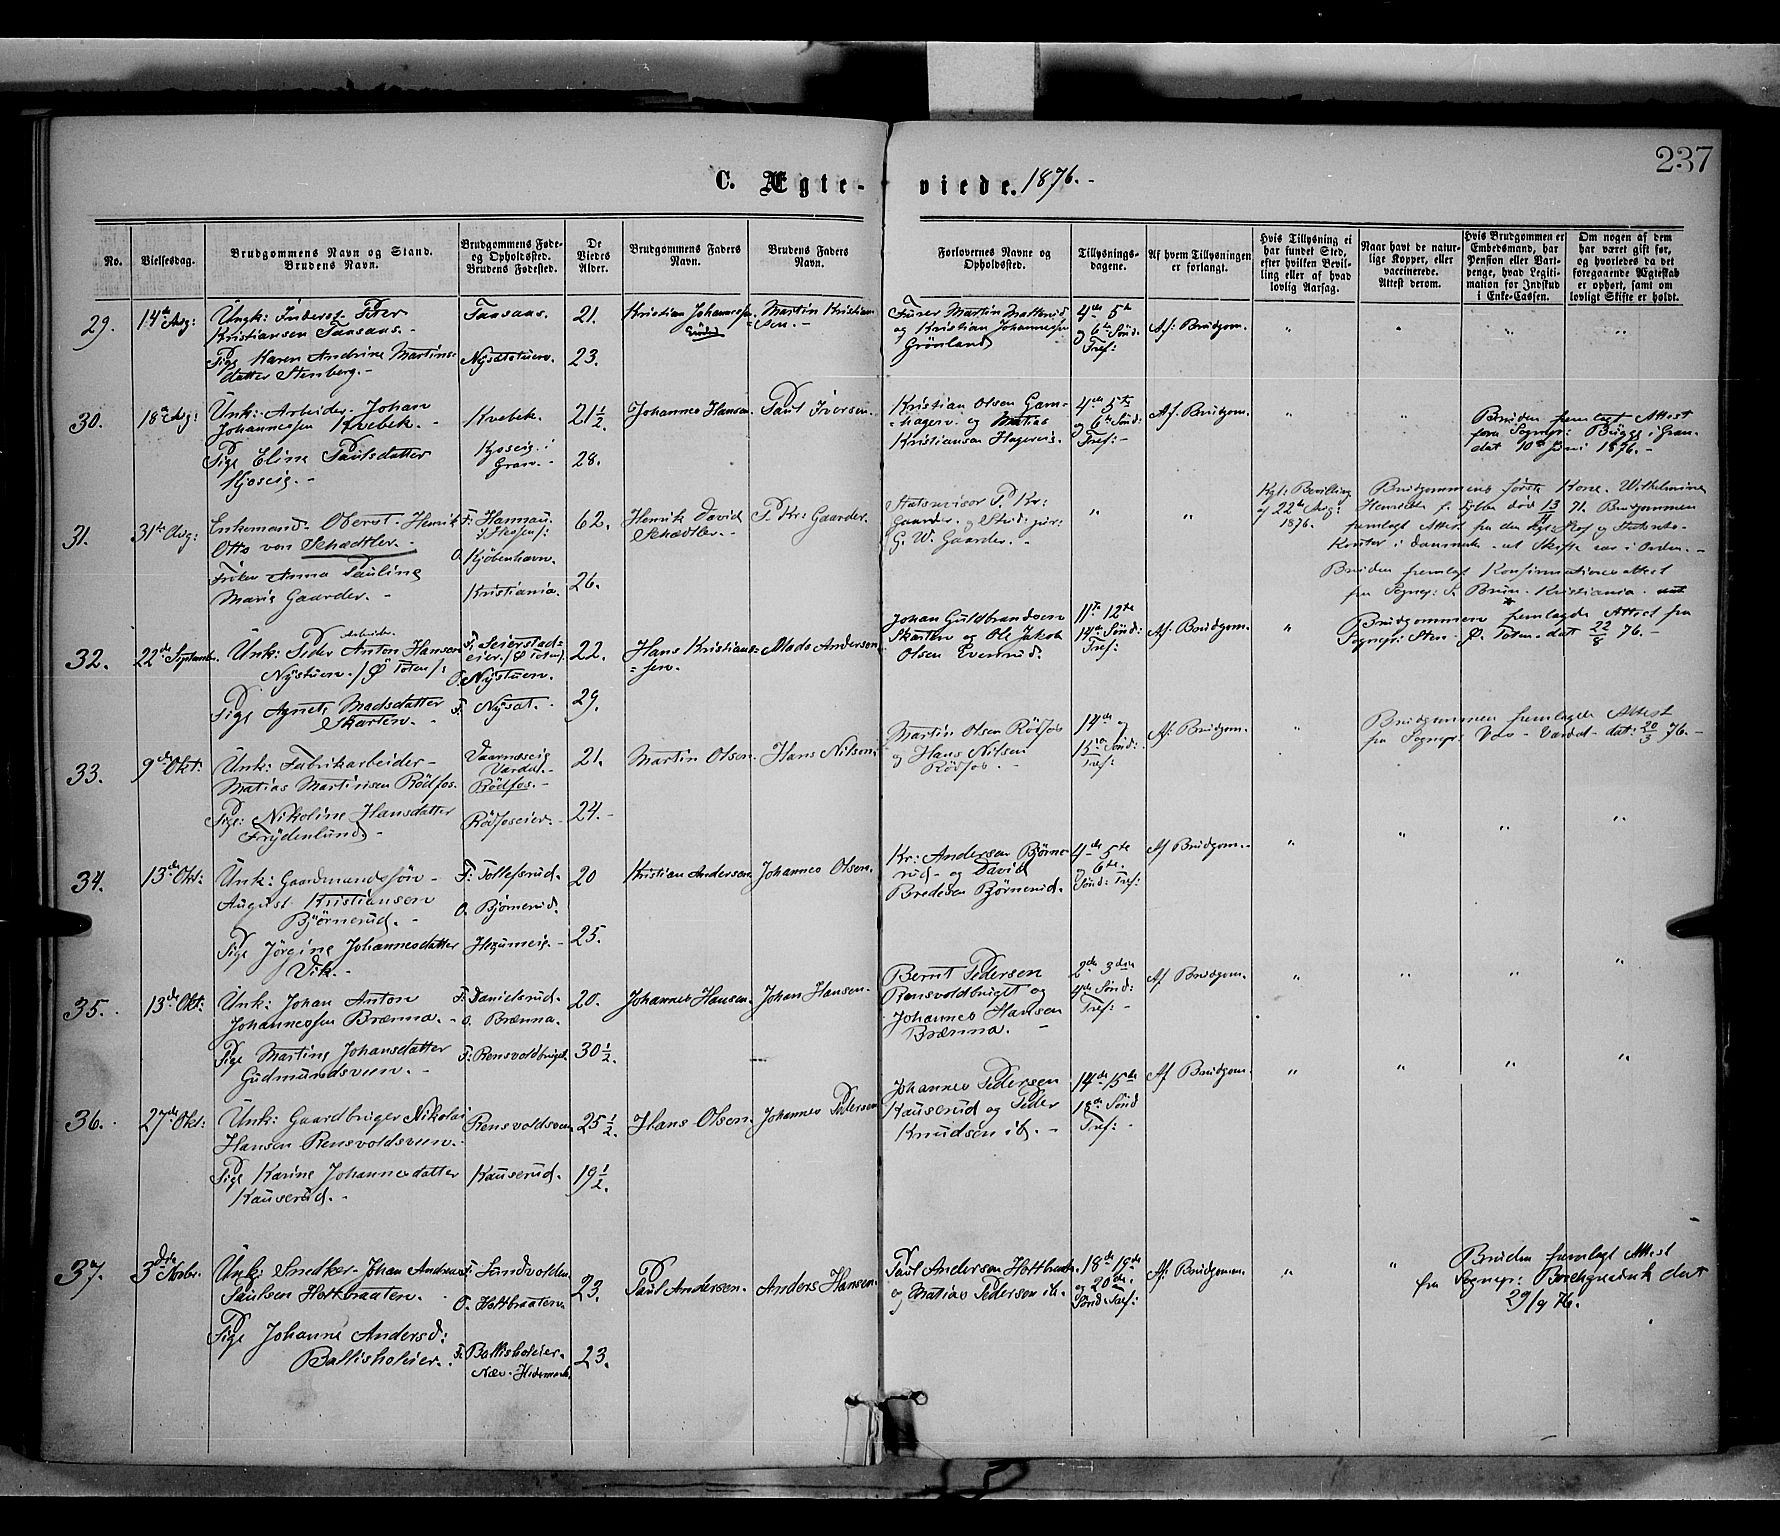 237
C. Ægteviede. 1876.-
No.
Vielsesdag.
Brudgommens Navn og Stand.
Brudens Navn.
Brudgommens Føde-
og Opholdssted.
Brudens Fødested.
De
Viedes
Alder.
Brudgommens Faders
Navn.
Brudens Faders
Navn.
Forlovernes Navne og
Opholdssted.
Tillysnings-
dagene.
Af hvem Tillysningen
er forlangt.
Hvis Tillysning ei
har fundet Sted,
efter hvilken Bevil-
ling eller af hvad
lovlig Aarsag.
Naar havt de natur-
lige Kopper, eller
vaccinerede.
Attest derom.
Hvis Brudgommen er
Embedsmand, har
Pension eller Vart-
penge, hvad Legiti-
mation for Indskud
i Enke-Cassen.
Om nogen af dem
har været gift før,
og hvorledes da det
foregaaende Ægteskab
er ophørt, samt om
lovligt Skifte er holdt.
29.
14de Aug:
Ungk: Inderst Peer
Kristiansen Taasaas.-
Pige Karen Andrine Martins-
datter Stenberg.-
Taasaas.
Nysætstuen.
21.
23.
Kristian Johannessen
Martin Kristian-
sen.-
Furer Martin
og Kristian Johannessen
Grönland
4de 5te
og 6te Sönd:
Tref:
Af: Brudgom.
30.
18de Aug:
Ünk: Arbeider Johan
Johannessen Kvebek.-
Pige Eline Paulsdatter
Kjoseig.-
Kvebek.
Kjoseig i
Gran.-
21½
28.
Johannes Hansen.
Paul Iversen.
Kristian Olsen Gam-
hagen. og Matias
Kristiansen Hagereig.
4de 5te
og 6te Sönd:
Tref:-
Af. Brudgom.
Bruden fremlagt Attest
fra Sognepr: Bugge i Gran
dat 10de Juni 1876.-
31.
31te Aug:
Enkemand. Oberst. Henrik
Otto von Schædtler.-
Frøken Anna Pauline
Marie Gaarder.-
F: Hannau.
O. Kjöbenhavn.
Kristiania.
62.
26.
Henrik David
Schædtler.-
P. Kr: Gaarder.
Statsrevisor P. Kr:
Gaarder. og Stud: jur:
G. W. Gaarder.-
Kgl: Bevilling
af 22de Aug:
1876.
Brudgommens første Kone. Wilhelmine
Henriette f. død 13/ 71. Brudgommen
fremlagt Attest fra den kgl: Hof og Stadsrets-
Kontor i Danmark - at Skifte var i Orden.-
Bruden fremlagt Konfirmationsattest
fra Sognepr: Bruun. Kristiania.
32.
22de Septemb.
Arbeider
Ünk: Peder Anton Hansen
Nÿstuen. / Ø Toten /:
Pige Agnete Madsdatter
Skarten.-
F. Seierstad-
eier / Ø Toten /.
O. Nÿstuen.
F. Nÿsæt.-
22.
29.
Hans Kristian-
sen.
Mads Andersen
Johan Guldbrandsen
Skarten og Ole Jakob
Olsen Evenrud.
11te 12te
14de Sönd:
Tref:
Af: Brudgom.
Brudgommen fremlagde Attest fra
Sognepr: Sten - Ø. Toten - dat 22/8 76.-
33.
9de Okt:
Ünk: Fabrikarbeider-
Matias Martinsen Rödfos.
Pige: Nikoline Hansdatter
Frydenlund.-
Vaarnæseig
Vardal.-
Rödfos.-
Rödfoseier.-
21.
24.-
Martin Olsen.
Hans Nilsen
Martin Olsen Rödfos
og Hans Nilsen
Rödfos.-
14de og
15de Sönd:
Tref:
Af: Brudgom.
Brudgommen fremlagde Attest
fra Sognepr: Vardal - dat: 20/3 76.-
34.
13de Okt:
Ünk: Gaardmandssön-
August Kristiansen
Björnerud.-
Pige Jörgine Johannesdatter
Vik.-
F: Tollefsrud.
O. Björnerud.
20
25.
Kristian Andersen
Johannes Olsen.
Kr: Andersen Björne-
rud - og David
Bredesen Björnerud.
4de 5te
og 6te.
Sönd: Tref:
Af Brudgom.
35.
13de Okt:
Ünk: Johan Anton
Johannessen Brænna.-
Pige Martine Johansdatter
Gudmundsveen.-
F: Danielsrud.
O. Brænna.
F: Rensvoldbruget.
20.
30½.
Johannes Hansen
Johan Hansen.
Bernt Pedersen
Rensvoldbruget og
Johannes Hansen
Brænna.-
2den 3dien
4de Sönd:
Tref:-
Af Brudgom.
36.
27de Okt:
Ünk: Gaardbruger Nikolai
Hansen Rensvoldsveen.-
Pige Karine Johannesdatter
Kauserud.-
Rensvoldsveen
Kauserud.-
25½.
19½.
Hans Olsen.
Johannes Pedersen
Johannes Pedersen
Kauserud og Peder
Knudsen ib.-
14de 15de
18de Sönd
Tref:
Af Brudgom.
37.
3die Novbr.
Ünk: Snedker. Johan Andreas
Paulsen Holtbraaten.
Pige Johanne Andersd:
Ballisholeier.
F: Sundvolden
O. Holtbraaten
F. Ballisholeier.
Næs. Hedemark.
23.
23.
Paul Andersen.
Anders Hansen.
Paul Andersen Holtbraaten
og Matias Pedersen ib.
18de 19de
og 20de.
Sönd: Tref:
Af: Brudgommen.
Bruden fremlagt Attest
fra Sognepr: Borchgrevink dat
29/9 76.